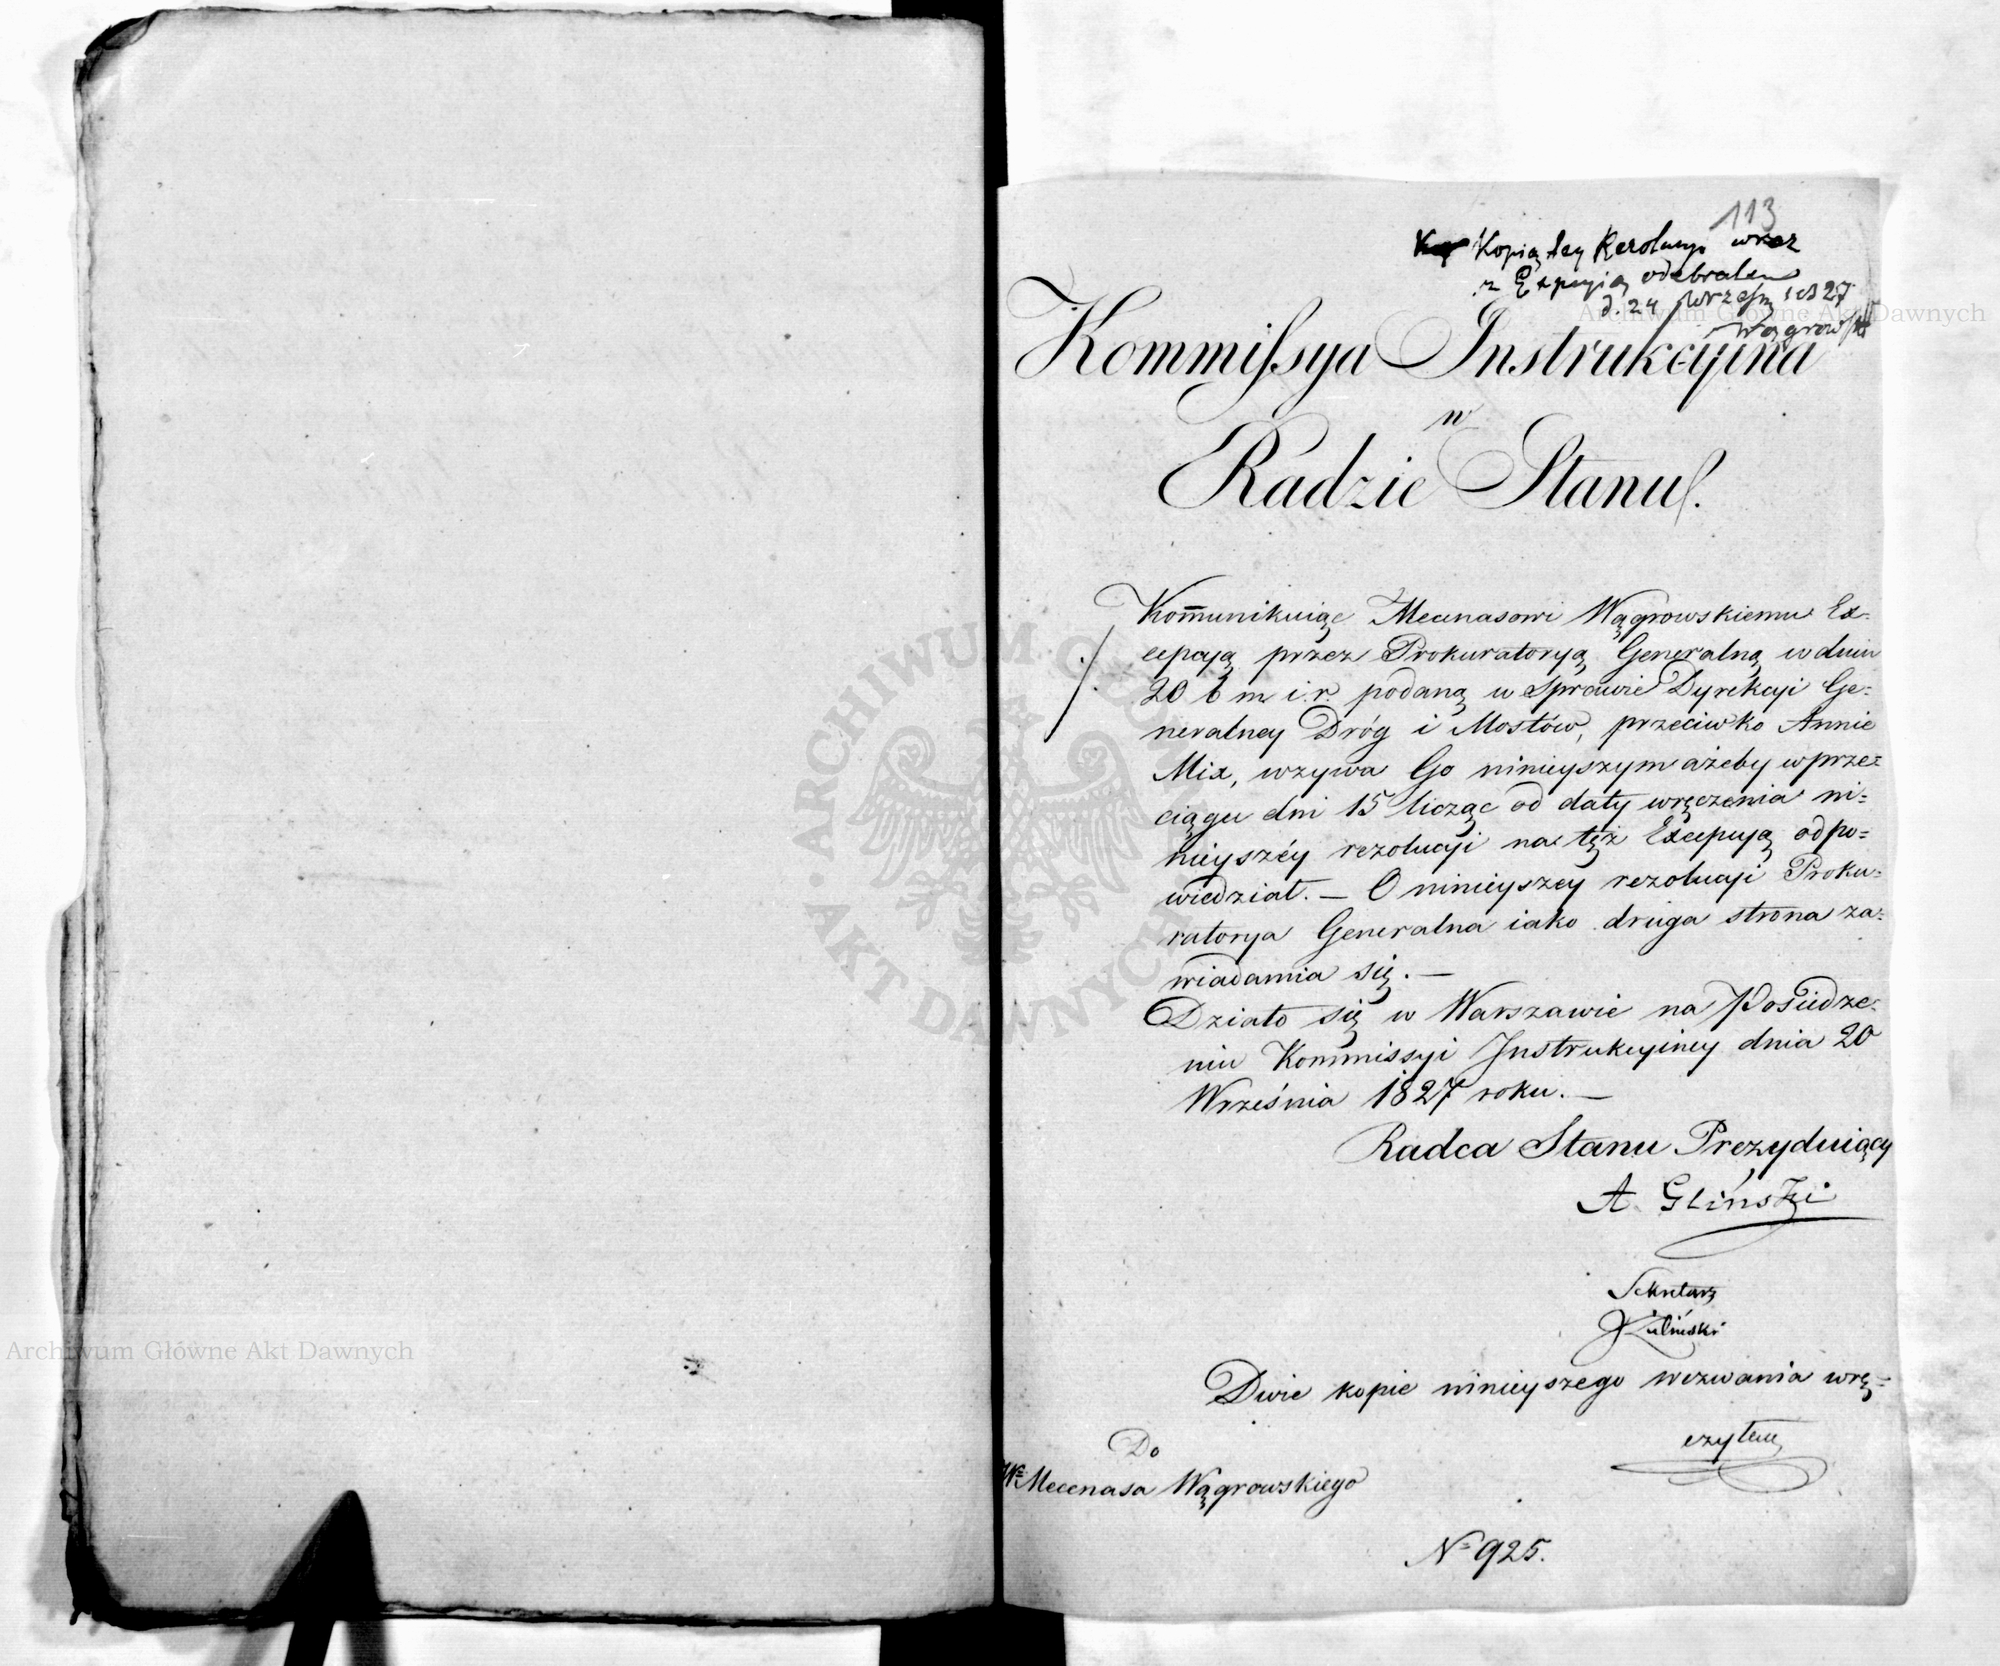 113
Kopią tey Rezolucyi wraz
z Excepcyią odebrałem
d. 24 Wrześn 1827
Wągrowski
Kommissya Instrukcyina
w
Radzie Stanu.
Kommunikuiąc Mecenasowi Wągrowskiemu Ex-
cepcyą przez Prokuratoryą Generalną w dniu
20 b m i r podaną w Sprawie Dyrekcyi Ge-
neralney Dróg i Mostów, przeciwko Annie
Mix, wzywa Go ninieyszym ażeby w prze-
ciągu dni 15 licząc od daty wręczenia ni-
nieyszéy rezolucyi na tęż Excepcyą odpo-
wiedział. — O ninieyszey rezolucyi Proku-
ratorya Generalna iako druga strona za-
wiadamia się. —
Działo się w Warszawie na Posiedze-
niu Kommissyi Instrukcyiney dnia 20
Września 1827 roku. —
Radca Stanu Prezyduiący
A. Gliński
Sekretarz
Dwie kopie ninieyszego wezwania wrę-
czyłem
Do
Wo Mecenasa Wągrowskiego
No 925.
Archiwum Główne Akt Dawnych
Archiwum Główne Akt Dawnych
ARCHIWUM GŁÓWNE AKT DAWNYCH